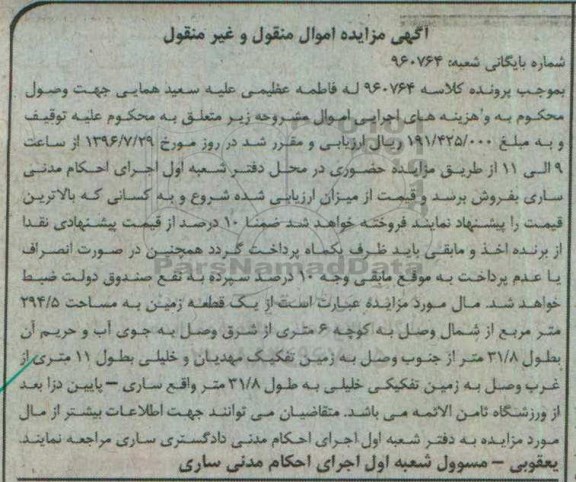 آگهی مزایده اموال منقول و غیر منقول
شماره بایگانی شعبه: ۹۶۰۷۶۴
بموجب پرونده کلاسه ۹۶۰۷۶۴ له فاطمه عظیمی علیه سعید همایی جهت وصول
محکوم به و هزینه های اجرایی اموال مشروحه زیر متعلق به محکوم علیه توقیف
و به مبلغ ۱۹۱/۴۲۵/۰۰۰ ریال ارزیابی و مقرر شد در روز مورخ ۱۳۹۶/۷/۲۹ از ساعت
۹ الی ۱۱ از طریق مزایده حضوری در محل دفتر شعبه اول اجرای احکام مدنی
ساری بفروش برسد و قیمت از میزان ارزیابی شده شروع و به کسانی که بالاترین
قیمت را پیشنهاد نمایند فروخته خواهد شد ضمنا ۱۰ درصد از قیمت پیشنهادی نقدا
از برنده اخذ و مابقی باید ظرف یکماه پرداخت گردد همچنین در صورت انصراف
یا عدم پرداخت به موقع مابقی وجه ۱۰ درصد سپرده به نفع صندوق دولت ضبط
خواهد شد. مال مورد مزایده عبارت است از یک قطعه زمین به مساحت ۲۹۴/۵
متر مربع از شمال وصل به کوچه ۶ متری از شرق وصل به جوی آب و حریم آن
بطول ۳۱/۸ متر از جنوب وصل به زمین تفکیک مهدیان و خلیلی بطول ۱۱ متری از
غرب وصل به زمین تفکیکی خلیلی به طول ۳۱/۸ متر واقع ساری – پایین دزا بعد
از ورزشگاه ثامن الائمه می باشد. متقاضیان می توانند جهت اطلاعات بیشتر از مال
مورد مزایده به دفتر شعبه اول اجرای احکام مدنی دادگستری ساری مراجعه نمایند.
یعقوبی – مسوول شعبه اول اجرای احکام مدنی ساری
ParsNamadData